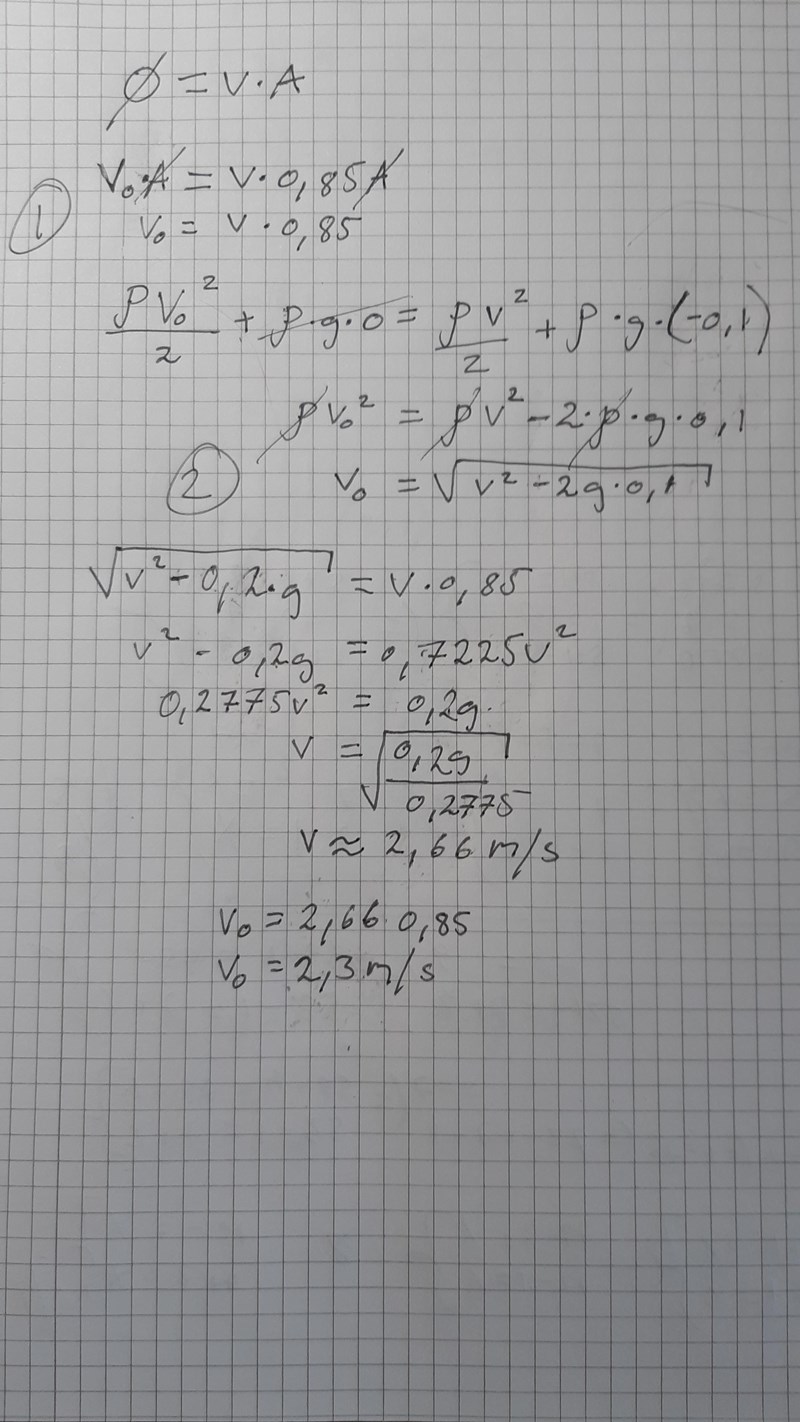 ϕ = v · A
① V₀·A = v · 0,85A
V₀ = v · 0,85
ρV₀²/2 + ρ·g·0 = ρv²/2 + ρ·g·(-0,1)
ρV₀² = ρv² - 2·ρ·g·0,1
② V₀ = √(v² - 2g·0,1)
√(v² - 0,2·g) = v · 0,85
v² - 0,2g = 0,7225v²
0,2775v² = 0,2g.
v = √(0,2g/0,2775)
v ≈ 2,66 m/s
V₀ = 2,66·0,85
V₀ = 2,3 m/s